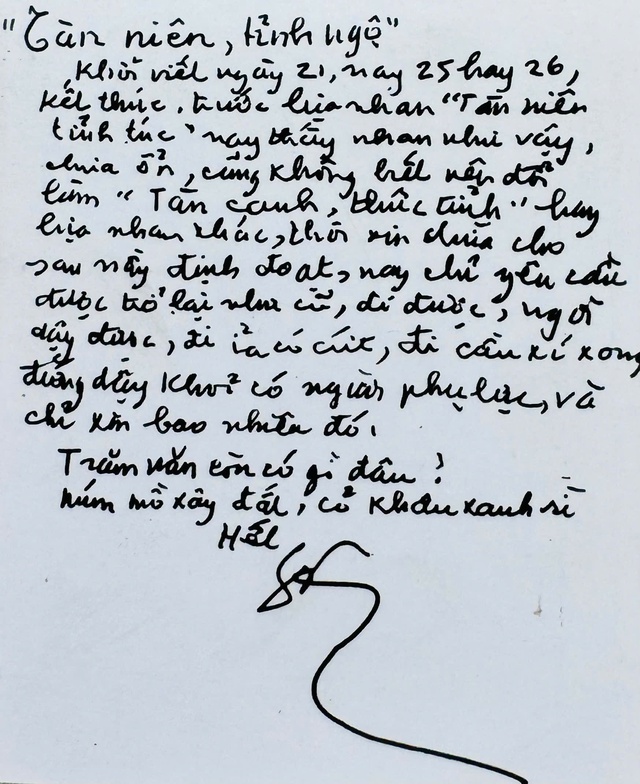 "Tàn niên, tỉnh ngộ"
Khởi viết ngày 21, nay 25 hay 26,
kết thúc. trước lựa nhan "Tàn niên
tỉnh túc" nay thấy nhan như vậy,
chưa ổn, cũng không biết nên đổi
làm "Tàn canh, thức tỉnh" hay
lựa nhan khác, thôi xin chừa cho
sau này định đoạt, nay chỉ yêu cầu
được trở lại như cũ, đi được, ngồi
dậy được, đi ỉa có cứt, đi cầu xí xong
đứng dậy khỏi có người phụ lực, và
chỉ xin bao nhiêu đó.
Trăm năm còn có gì đâu?
Núm mồ xây đất, cỏ khâu xanh rì
Hết